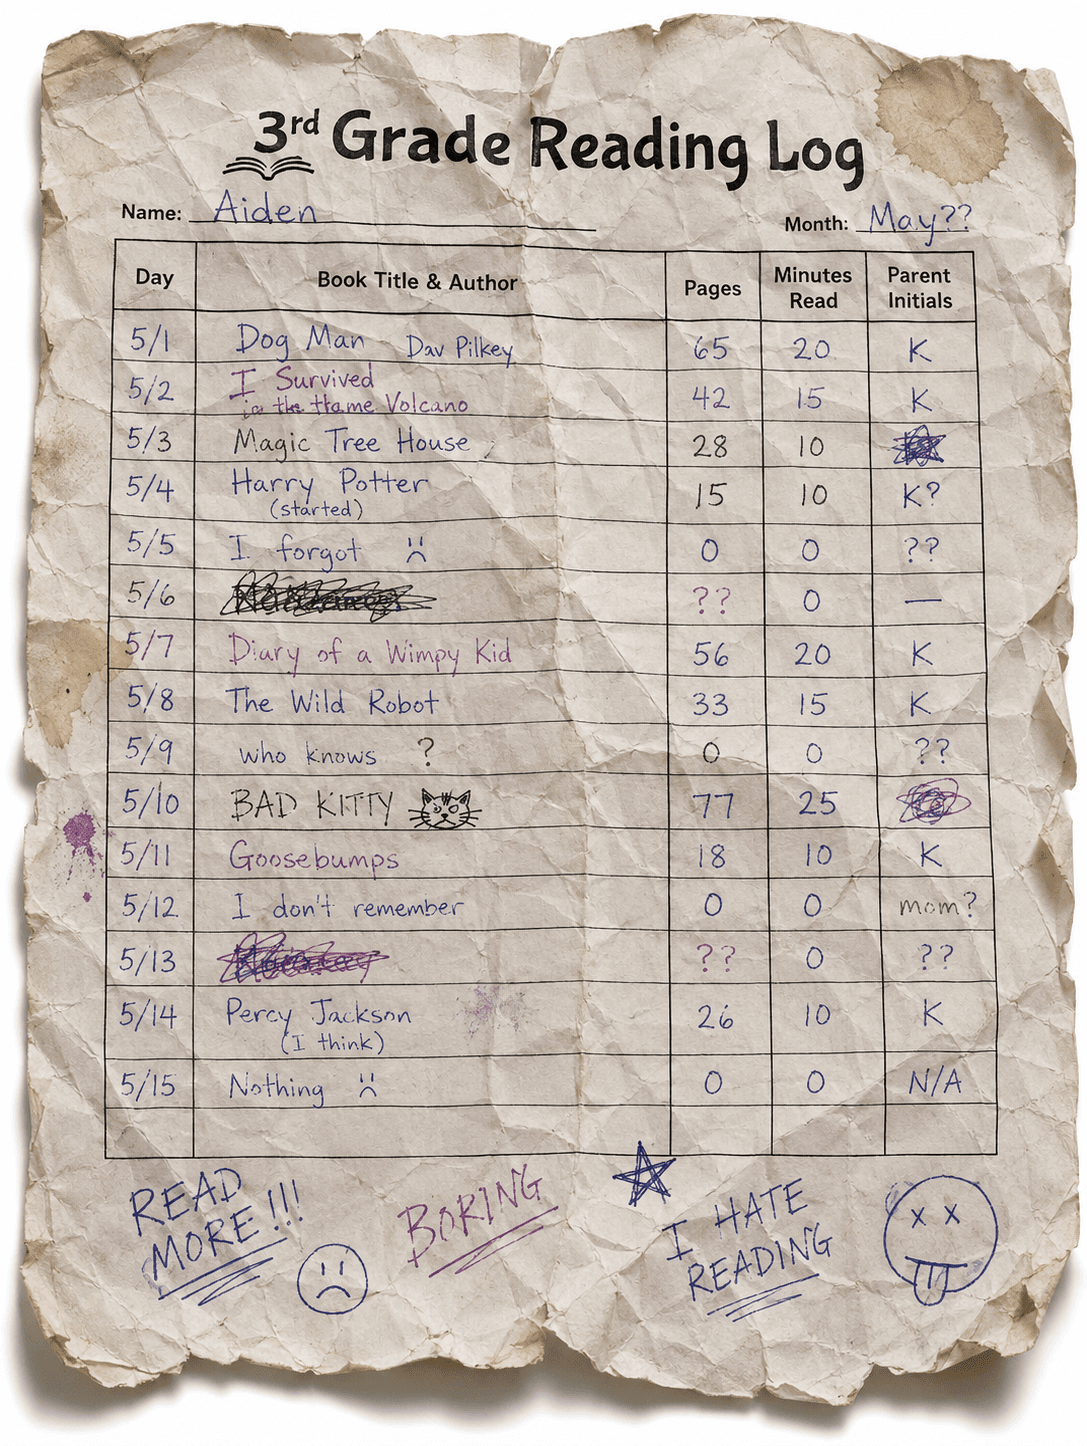 3rd Grade Reading Log
Name: Aiden
Month: May??
Day Book Title & Author Pages Minutes Read Parent Initials
5/1 Dog Man Dav Pilkey 65 20 K
5/2 I Survived 42 15 K
the Volcano
5/3 Magic Tree House 28 10
5/4 Harry Potter 15 10 K?
(started)
5/5 I forgot 0 0 ??
5/6 ?? 0 —
5/7 Diary of a Wimpy Kid 56 20 K
5/8 The Wild Robot 33 15 K
5/9 who knows ? 0 0 ??
5/10 BAD KITTY 77 25
5/11 Goosebumps 18 10 K
5/12 I don't remember 0 0 mom?
5/13 ?? 0 ??
5/14 Percy Jackson 26 10 K
(I think)
5/15 Nothing 0 0 N/A
READ
MORE!!!
BORING
I HATE
READING